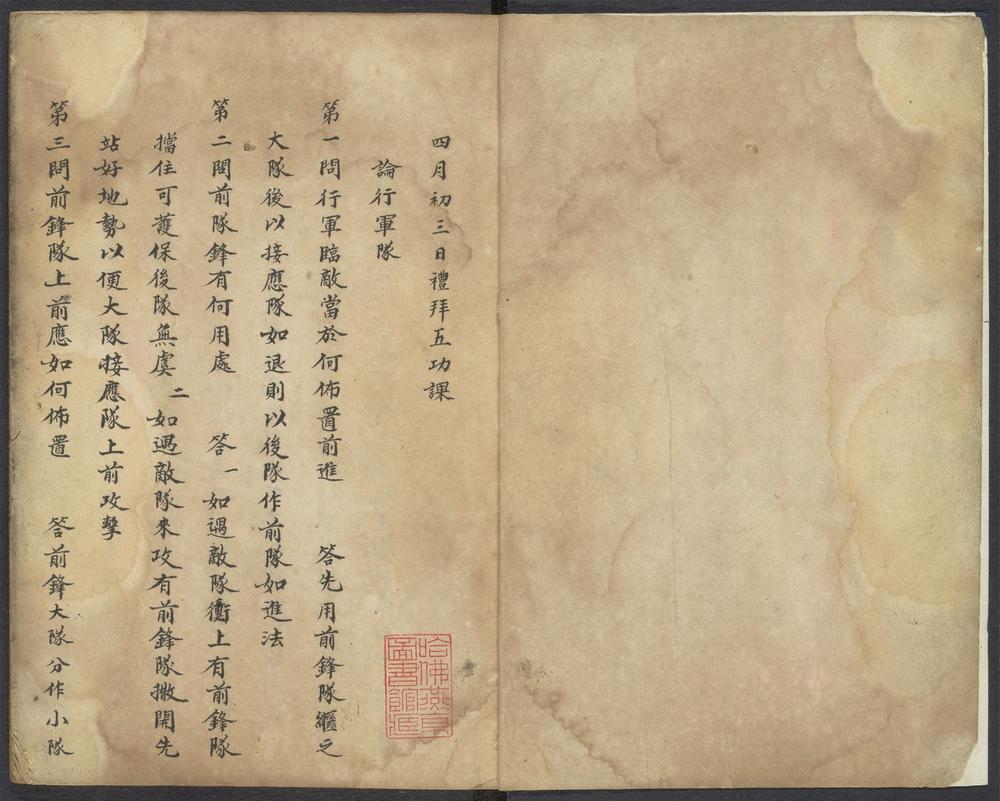 四月初三日禮拜五功課
論行軍隊
第一問行軍臨敵當於何佈置前進　答先用前鋒隊繼之
大隊後以接應隊如退則以後隊作前隊如進法
第二問前隊鋒有何用處　答一如遇敵隊衝上有前鋒隊
擋住可護保後隊無虞二如遇敵隊來攻有前鋒隊撒開先
站好地勢以便大隊接應隊上前攻擊
第三問前鋒隊上前應如何佈置　答前鋒大隊分作小隊
哈佛燕京圖書館藏